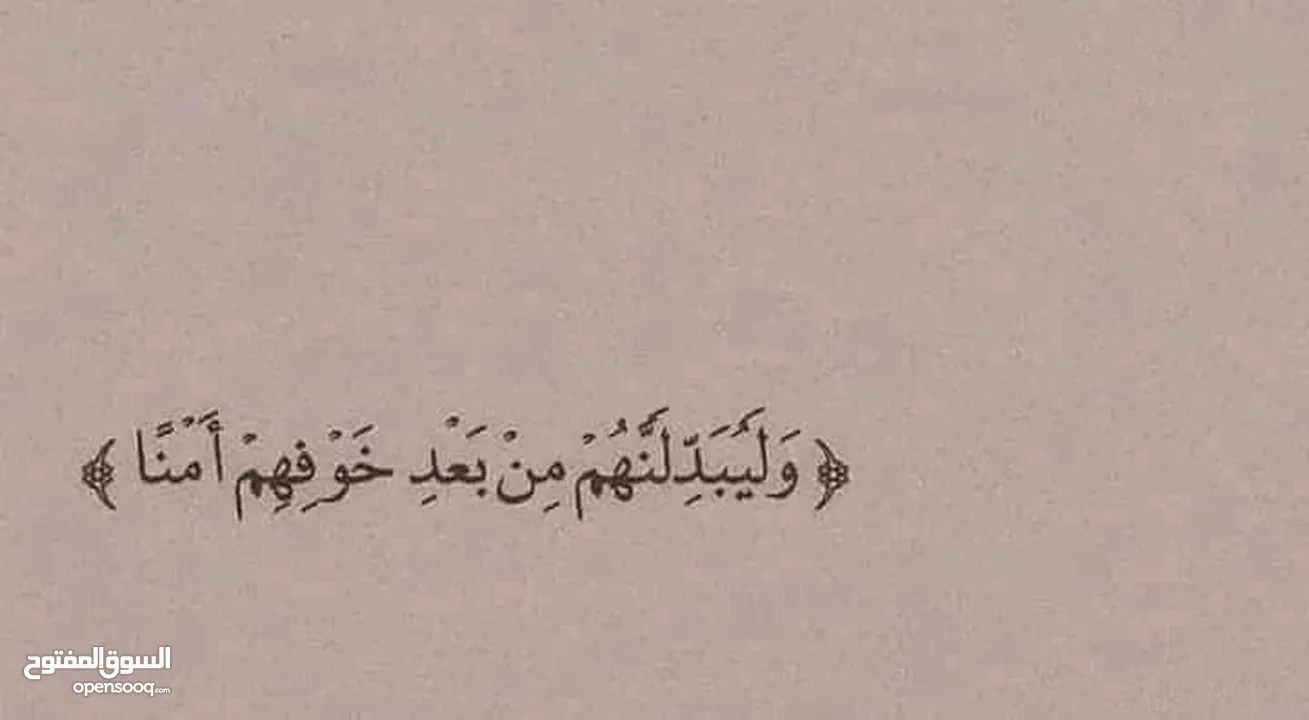 ﴿ وَلَيُبَدِّلَنَّهُمْ مِنْ بَعْدِ خَوْفِهِمْ أَمْنًا ﴾
السوق المفتوح
opensooq.com